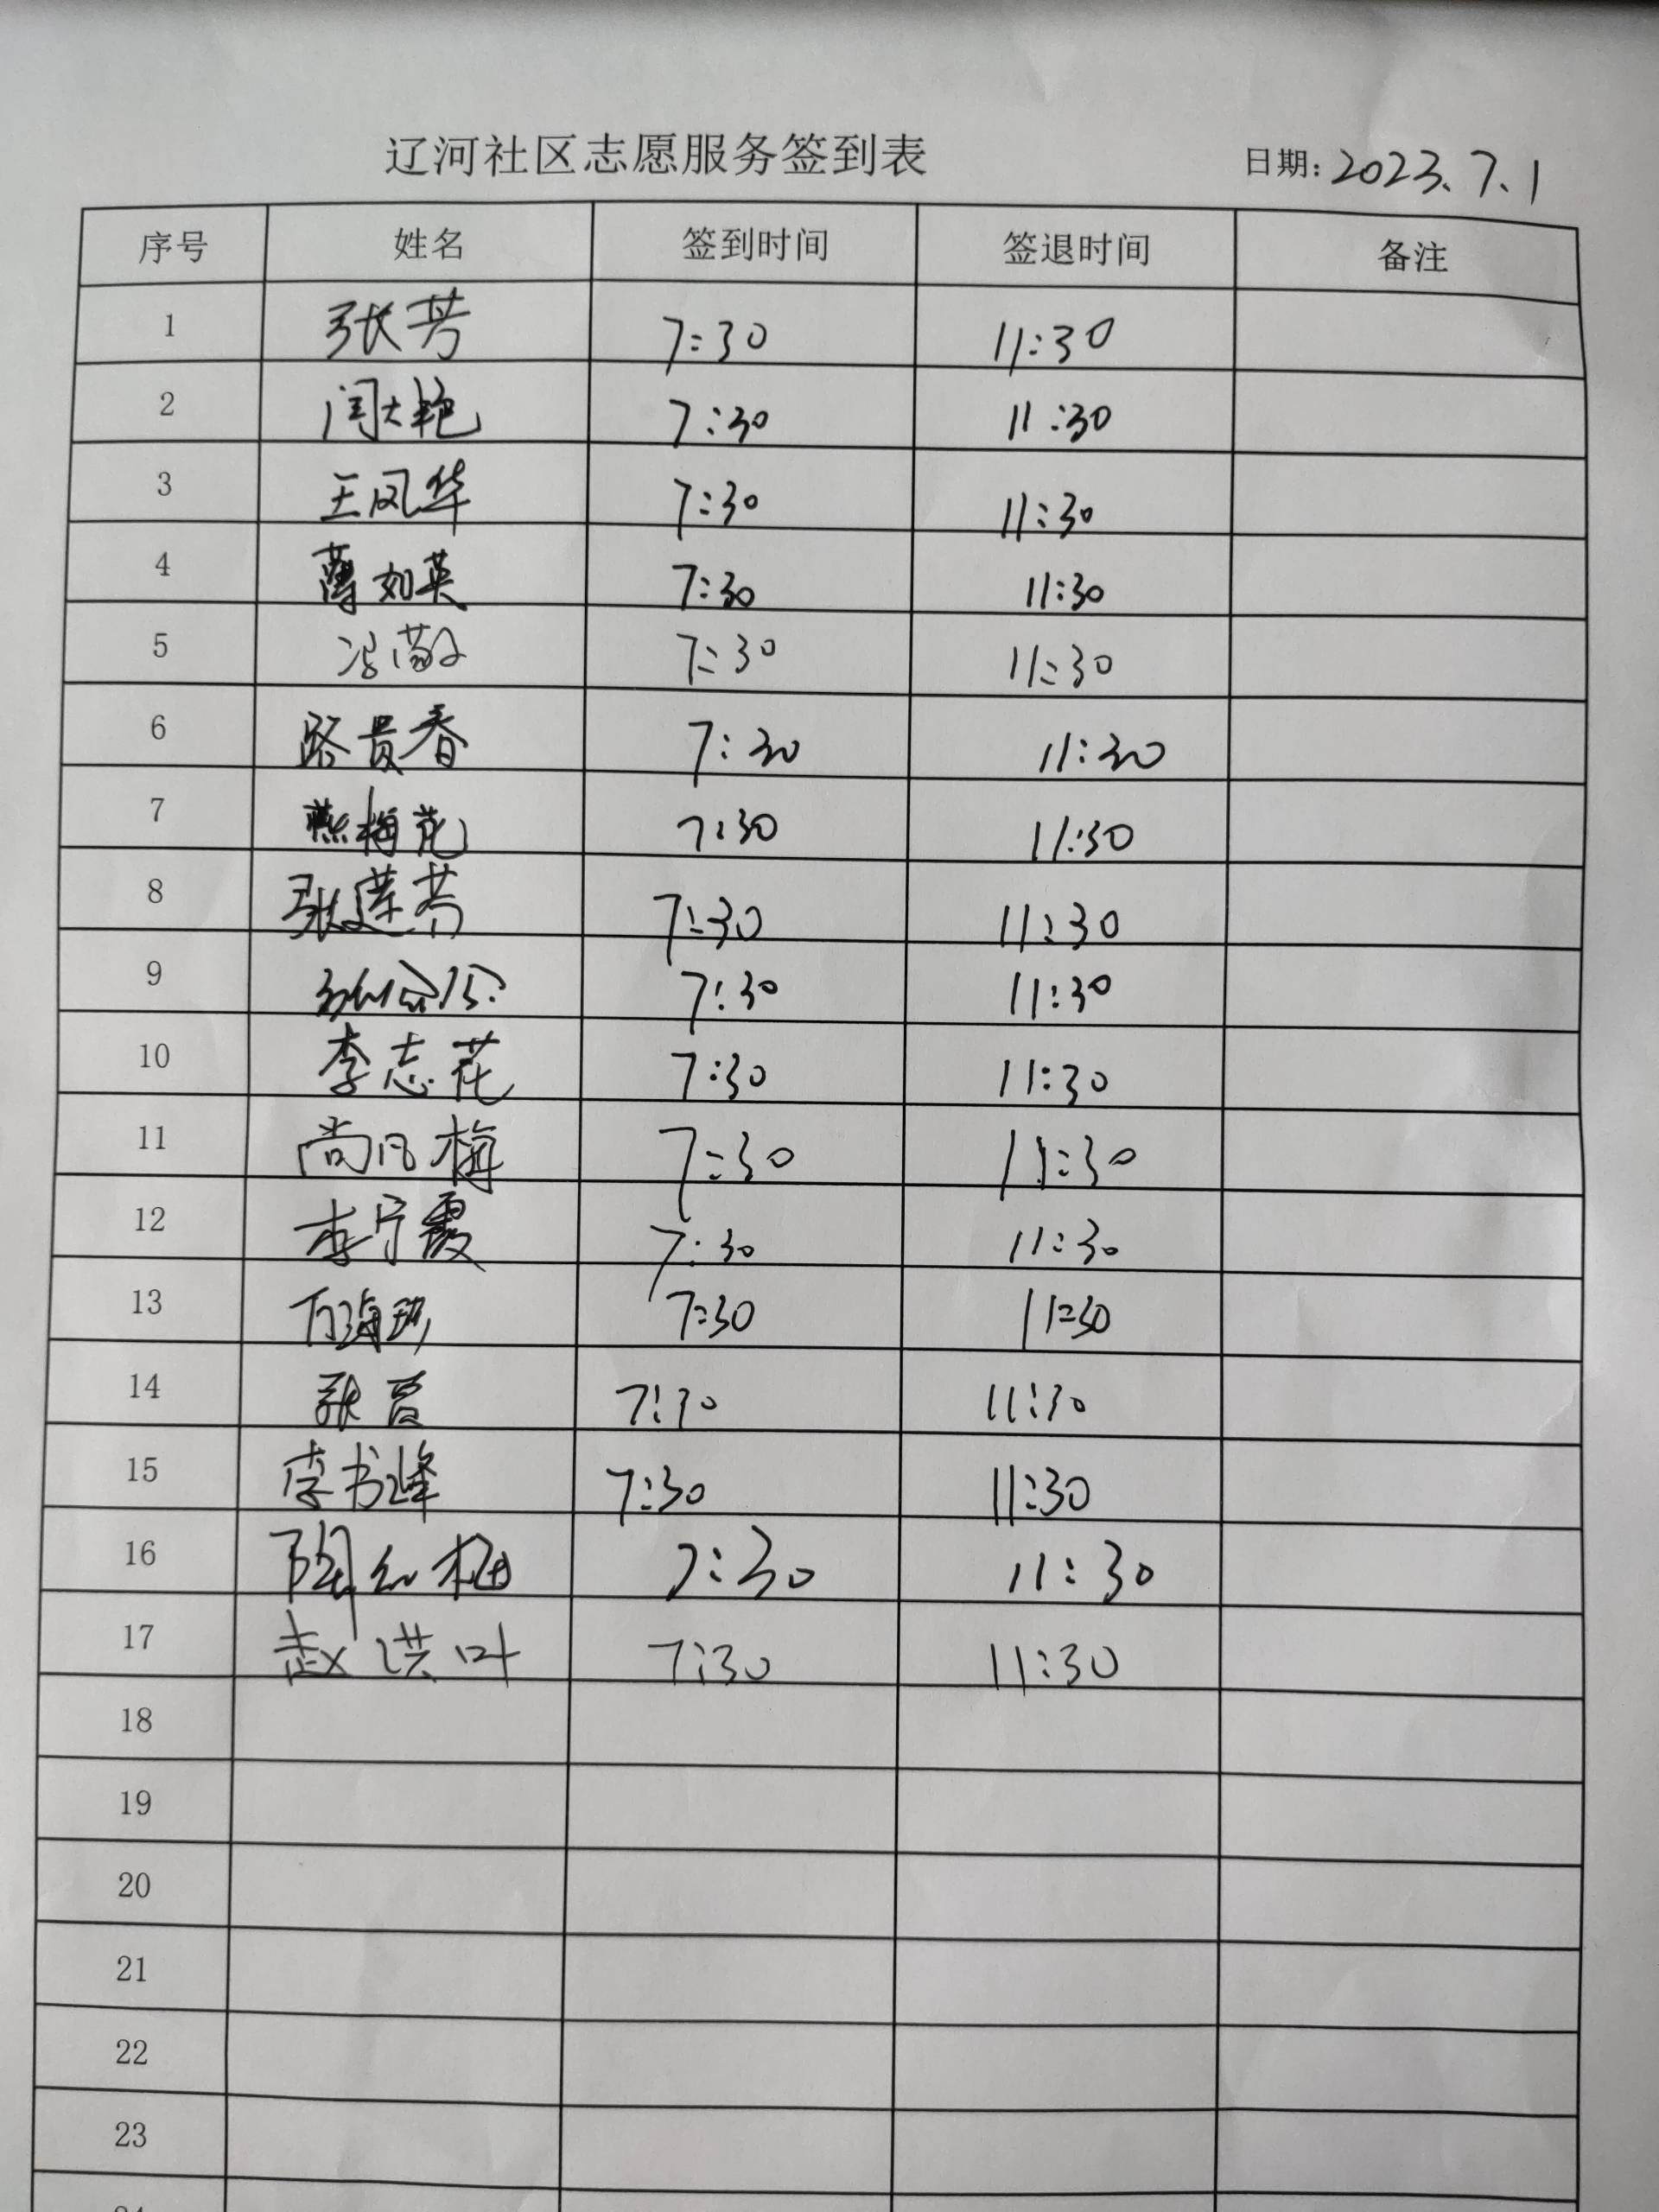 辽河社区志愿服务签到表 日期:2023.7.1
序号 姓名 签到时间 签退时间 备注
1 张芳 7:30 11:30
2 闫大艳 7:30 11:30
3 王凤华 7:30 11:30
4 如英 7:30 11:30
5 冯 7:30 11:30
6 路贵春 7:30 11:30
7 燕梅花 7:30 11:30
8 张莲芳 7:30 11:30
9 7:30 11:30
10 李志花 7:30 11:30
11 尚凤梅 7:30 11:30
12 李宁霞 7:30 11:30
13 7:30 11:30
14 张 7:30 11:30
15 李书峰 7:30 11:30
16 陶红梅 7:30 11:30
17 赵洪叶 7:30 11:30
18
19
20
21
22
23